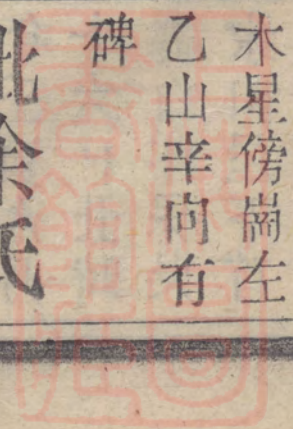 木星傍崗左
乙山辛向有
碑
妣徐氏